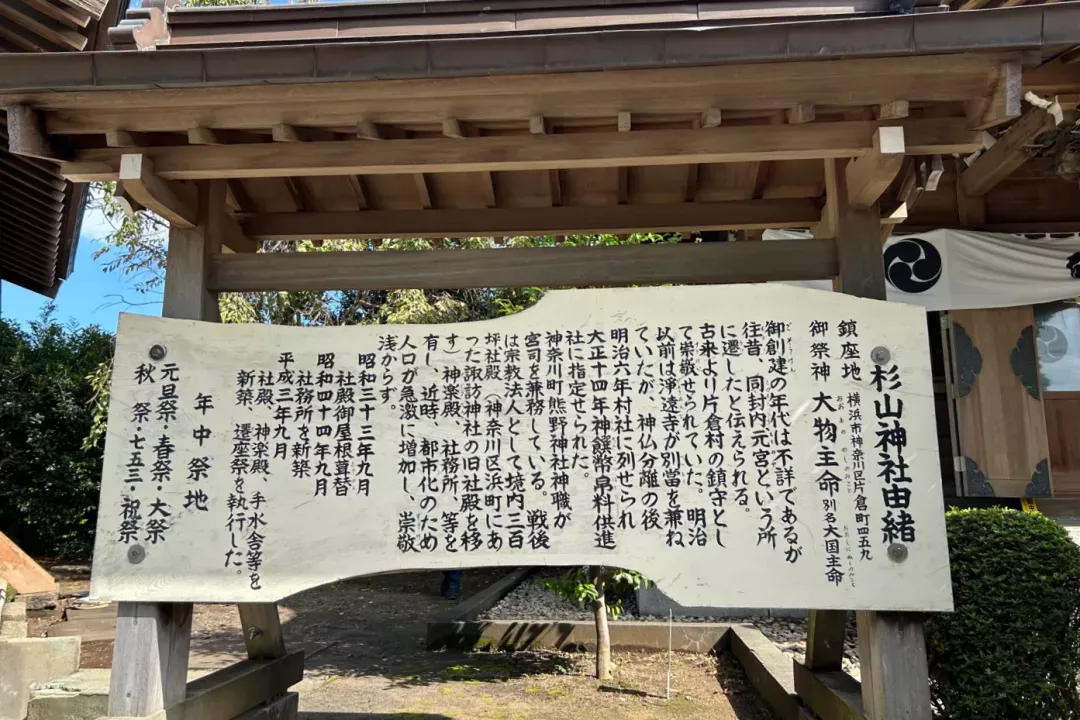 杉山神社由緒
鎮座地 横浜市神奈川区片倉町四五九
御祭神 大物主命 別名大国主命
御創建の年代は不詳であるが
往昔、同封内元宮という所
に遷したと伝えられる。
古来より片倉村の鎮守とし
て崇敬せられていた。明治
以前は浄遠寺が別當を兼ね
ていたが、神仏分離の後
明治六年村社に列せられ
大正十四年神饌幣帛料供進
社に指定せられた。
神奈川町熊野神社神職が
宮司を兼務している。戦後
は宗教法人として境内三百
坪社殿(神奈川区浜町にあ
った諏訪神社の旧社殿を移
す)神楽殿、社務所、等を
有し、近時、都市化のため
人口が急激に増加し、崇敬
浅からず。
昭和三十三年九月
社殿御屋根葺替
昭和四十四年九月
社務所を新築
平成三年九月
社殿、神楽殿、手水舎等を
新築、遷座祭を執行した。
年中祭地
元旦祭・春祭・大祭
秋祭・七五三・祝祭